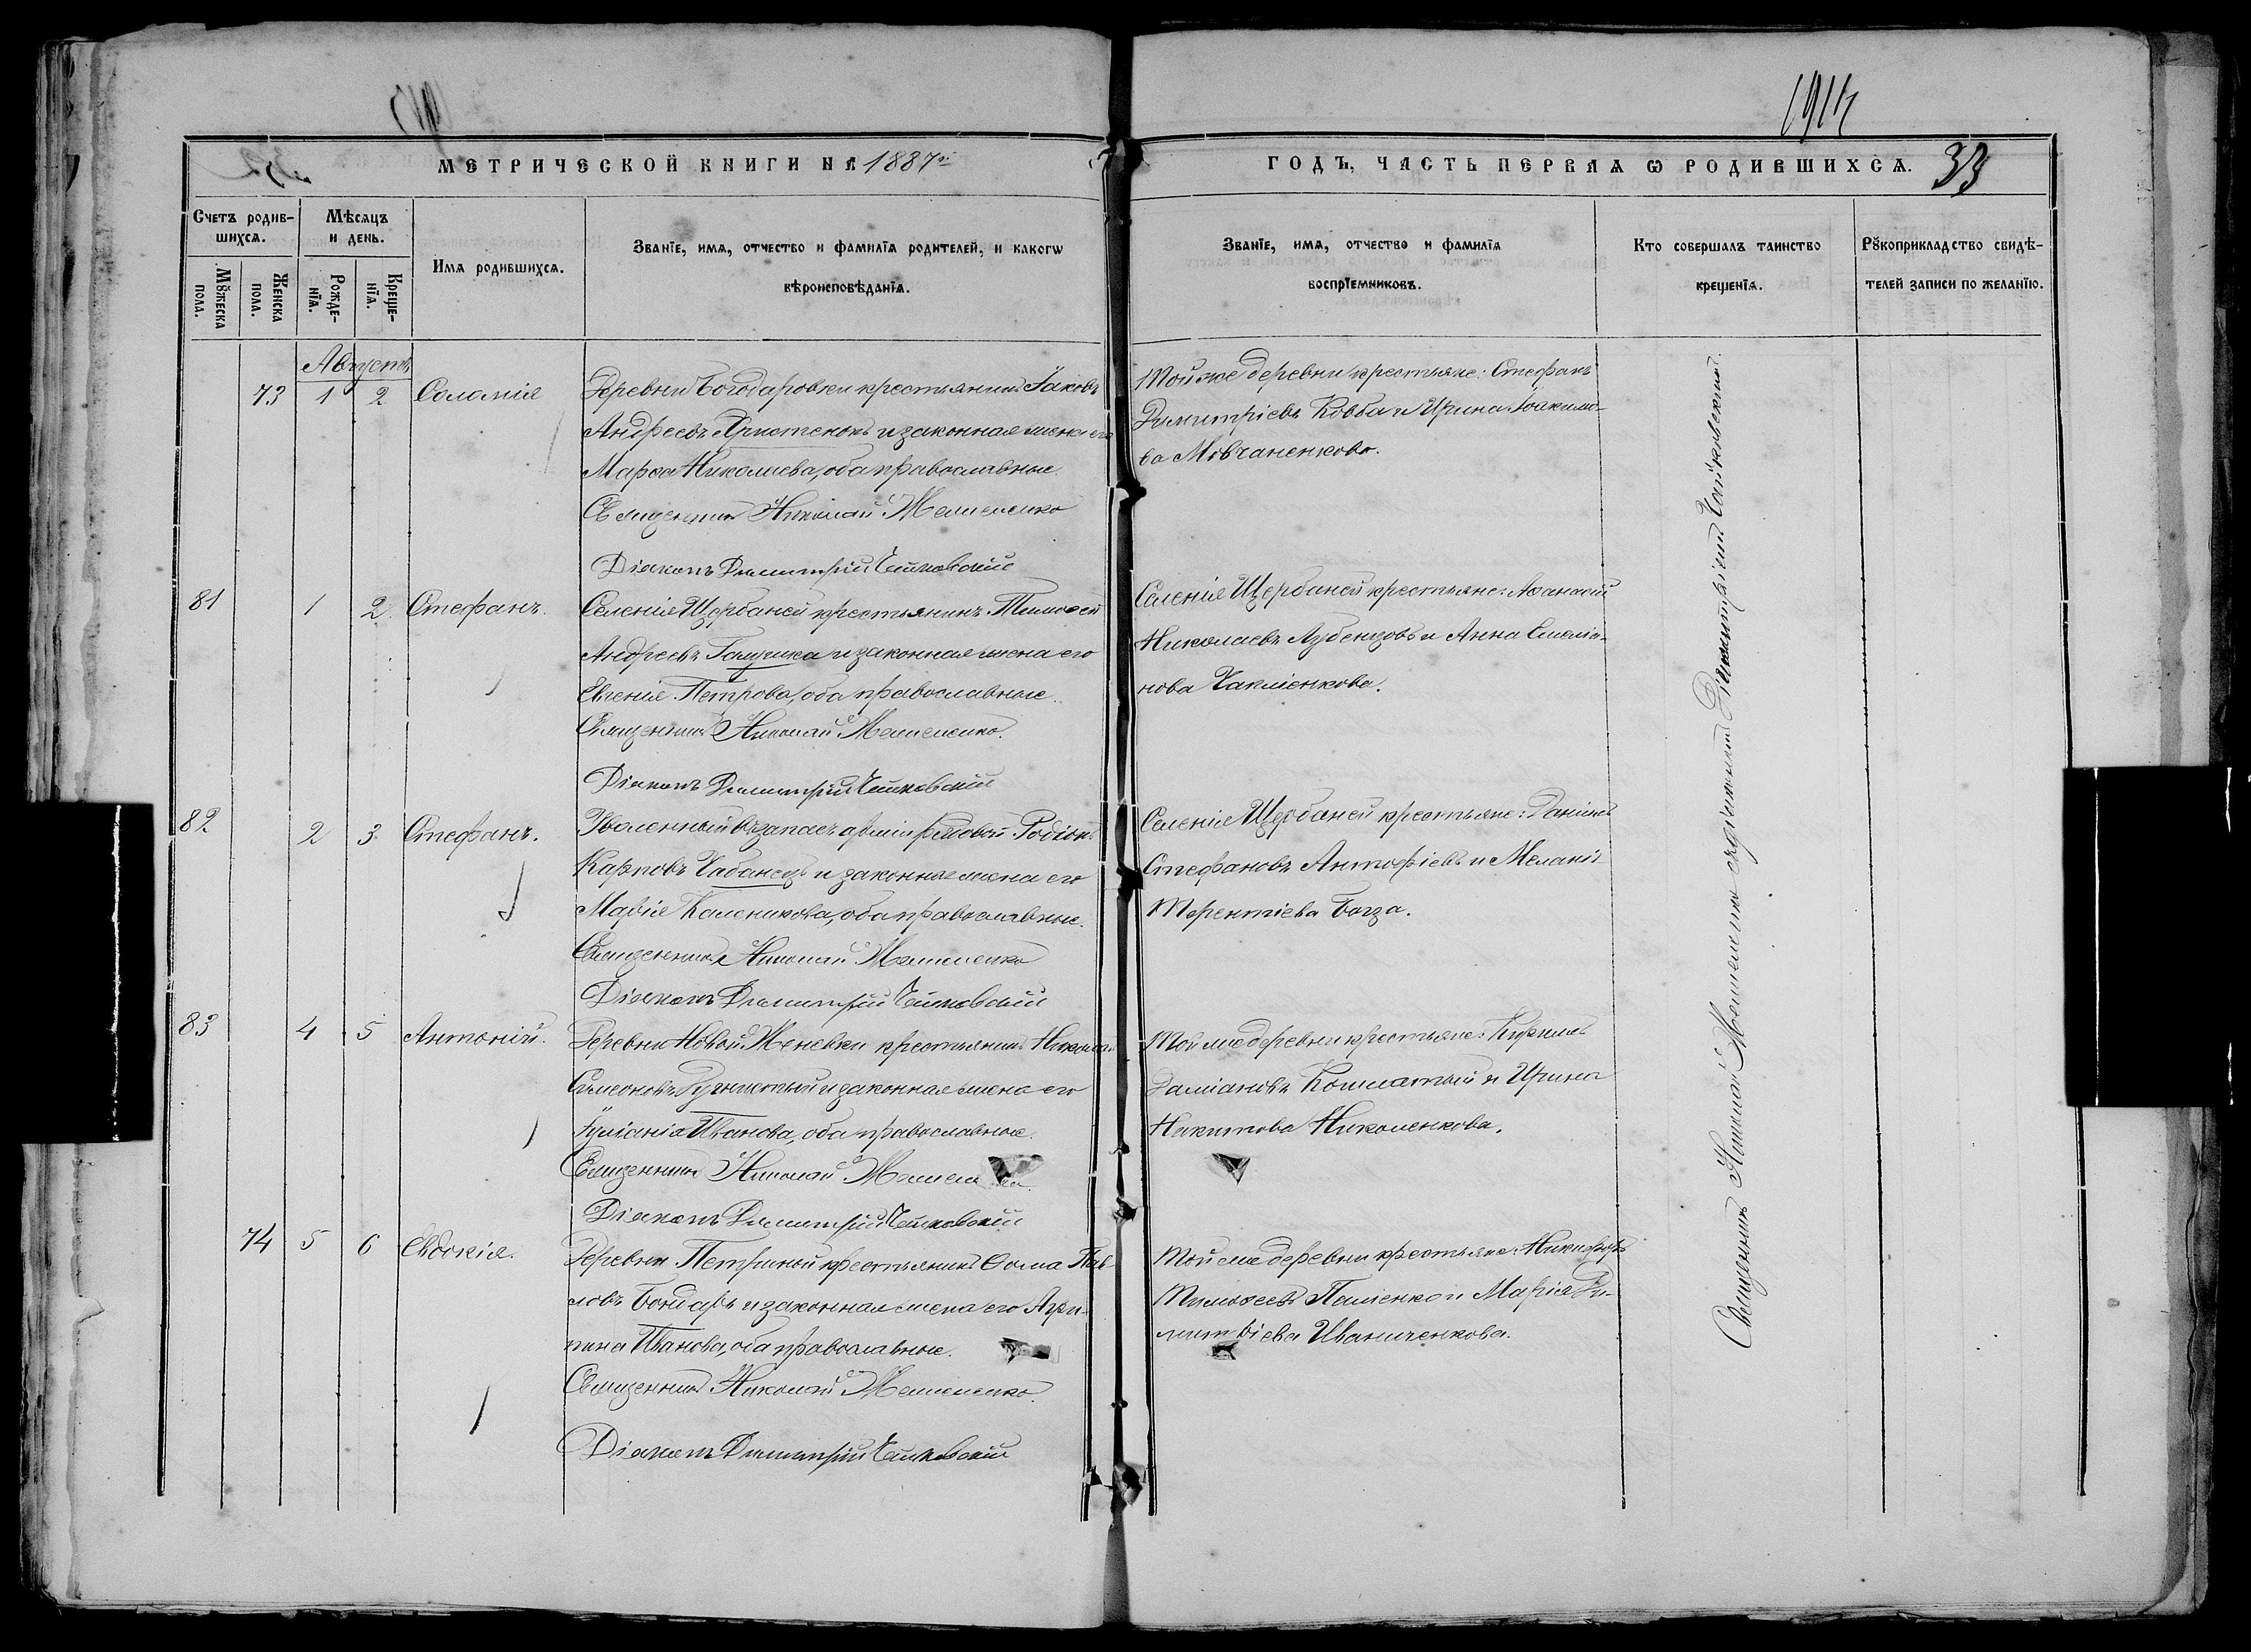 МЕТРИЧЕСКОЙ КНИГИ НА 1887й
ГОДЪ, ЧАСТЬ ПЕРВАЯ Ѡ РОДИВШИХСѦ. 33
Счетъ родив-
шихсѧ.
Мѣсѧцъ
и день.
Мꙋжеска
пола.
Женска
пола.
Рожде-
нїѧ.
Креще-
нїѧ.
Имѧ родившихсѧ.
Званїе, имѧ, отчество и фамилїѧ родителей, и какогѡ
вѣроисповѣданїѧ.
Званїе, имѧ, отчество и фамилїѧ
воспрїемниковъ.
Кто совершалъ таинство
крещенїѧ.
Рꙋкоприкладство свидѣ-
телей записи по желанїю.
Августъ
73 1 2 Соломія
Деревни Богодаровки крестьянинъ Іаковъ
Андреевъ и законная жена его
Марѳа Николаева, оба православные.
Священникъ Николай
Діаконъ Димитрій Чайковскій
Той же деревни крестьяне: Стефанъ
Димитріевъ Ковба и Ирина Іоакимо-
ва Мовчаненкова.
81 1 2 Стефанъ.
Селенія Щербаней крестьянинъ Тимоѳей
Андреевъ и законная жена его
Евгенія Петрова, оба православные.
Священникъ Николай
Діаконъ Димитрій Чайковскій
Селенія Щербаней крестьяне: Аѳанасій
Николаевъ и Анна Емелія-
нова
82 2 3 Стефанъ.
Уволенный въ запасъ арміи рядовой Родіонъ
Карповъ Чабанецъ и законная жена его
Марія Каленикова, оба православные.
Священникъ Николай
Діаконъ Димитрій Чайковскій
Селенія Щербаней крестьяне: Даніилъ
Стефановъ Антофіевъ и Меланія
Терентіева
83 4 5 Антоній.
Деревни Новой Женевки крестьянинъ Николай
Симеоновъ и законная жена его
Іуліанія Иванова, оба православные.
Священникъ Николай
Діаконъ Димитрій Чайковскій
Той же деревни крестьяне: Кириллъ
Даміановъ Кошматый и Ирина
Никитова Николенкова.
74 5 6 Евдокія.
Деревни Петриной крестьянинъ Ѳома Пав-
ловъ Бондарь и законная жена его Агри-
пина Иванова, оба православные.
Священникъ Николай
Діаконъ Димитрій Чайковскій
Той же деревни крестьяне: Никифоръ
Тимоѳеевъ Паліенко и Марія Ди-
митріева Иваниченкова.
Священникъ Николай съ діакономъ Димитріемъ Чайковскимъ.